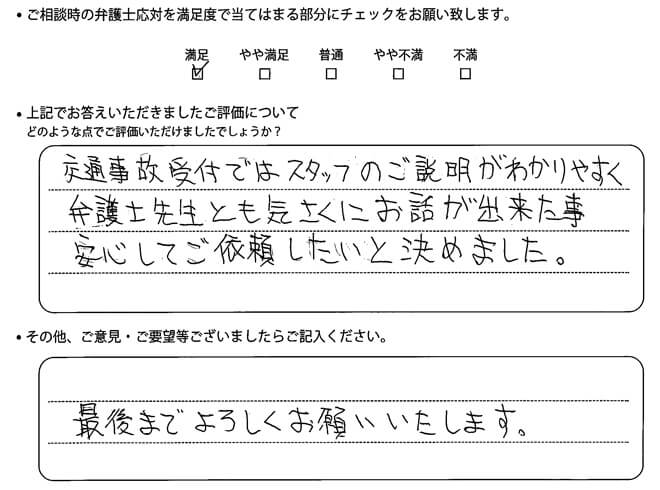 ・ご相談時の弁護士応対を満足度で当てはまる部分にチェックをお願い致します。
満足 やや満足 普通 やや不満 不満
☑ □ □ □ □
・上記でお答えいただきましたご評価について
どのような点でご評価いただけましたでしょうか？
交通事故受付ではスタッフのご説明がわかりやすく
弁護士先生とも気さくにお話が出来た事
安心してご依頼したいと決めました。
・その他、ご意見・ご要望等ございましたらご記入ください。
最後までよろしくお願いいたします。